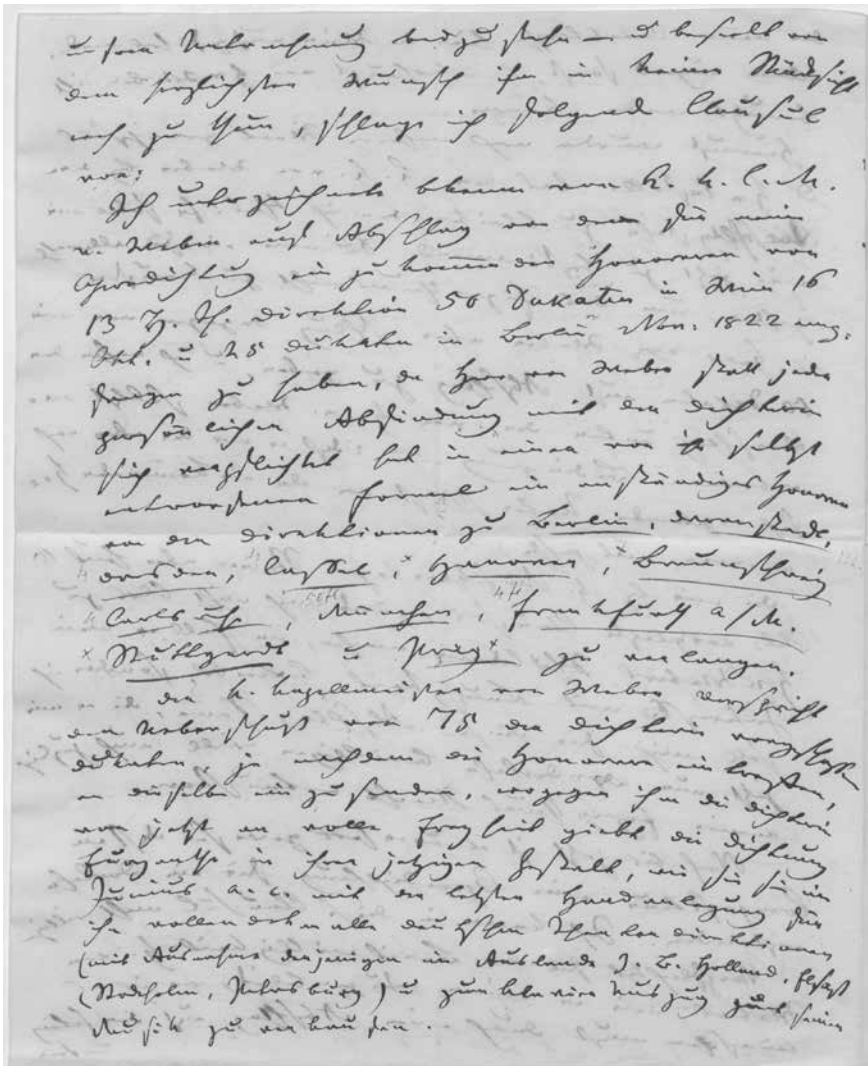 unsrer Unternehmung beizustehn — u beseelt von
dem herzlichsten Wunsch ihm in keiner Rücksicht
weh zu thun, schlage ich folgend Clausul
vor:
Ich unterzeichnete bekenne von H. K. C. M.
v. Weber auf Abschlag von dem für meine
Operndichtung ein zu kommenden Honoraren von
13 Th. direktion 50 Dukaten in Wien 16
Okt. u 25 dukaten in Berlin Nbr. 1822 emp:
fangen zu haben, da Herr von Weber statt jeder
persönlichen Abfindung mit der dichterin
sich verpflichtet hat in einem von ihr selbst
entworfenen Formel ein anständiges Honorar
von den direktionen zu Berlin, darmstadt,
dresden, Cassel, Hanover, Braunschweig
Carlsruhe, München, Frankfurth a/M.
Stuttgardt u Prag zu verlangen.
der K. Kapellmeister von Weber verspricht
den Ueberschuß von 75 der dichterin vorgeschoßnen
dukaten, je nachdem die Honorare eintreffen,
an dieselbe einzusenden, wogegen ihm die dichterin
von jetzt an volle Freyheit giebt die dichtung
Euryanthe in ihrer jetzigen Gestalt, wie sie sie im
Junius a. c. mit der letzten Handanlegung für
ihn vollendet an alle deutschen Theater direktionen
(mit Ausnahme derjenigen im Auslande z. B. Holland, Elsaß
(Stockholm, Petersburg) u zum Clavier Auszug seiner
Musik zu verkaufen.